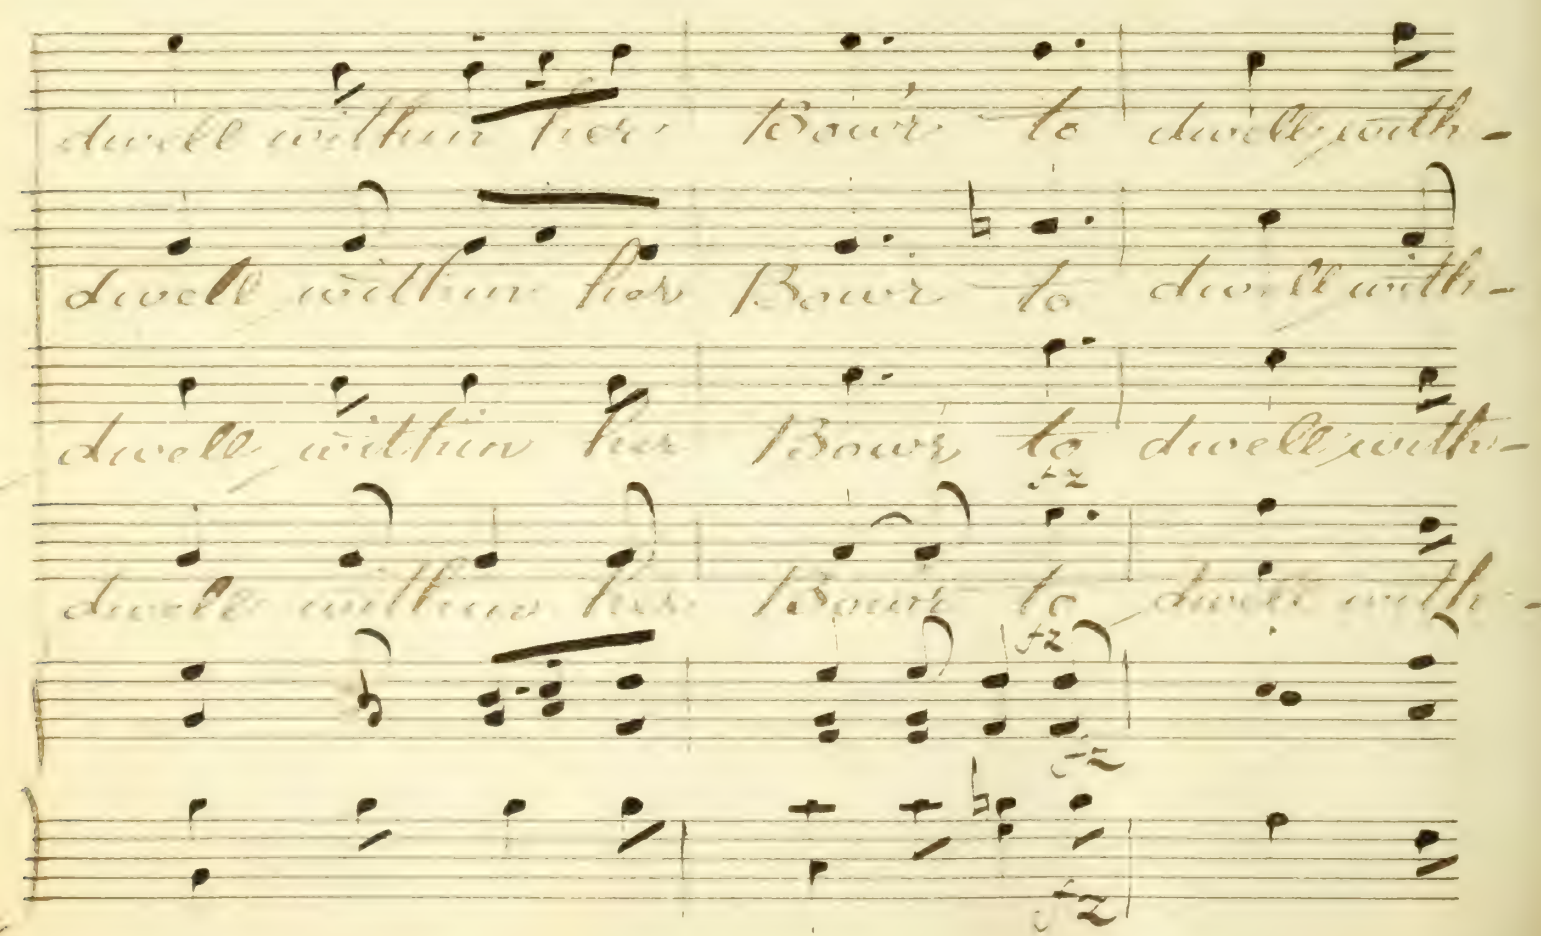 dwell within her Bow'r to dwell with-
dwell within her Bowr to dwell with-
dwell within her Bowr to dwell with-
fz
dwell within her Bowr to dwell with-
fz
fz
fz